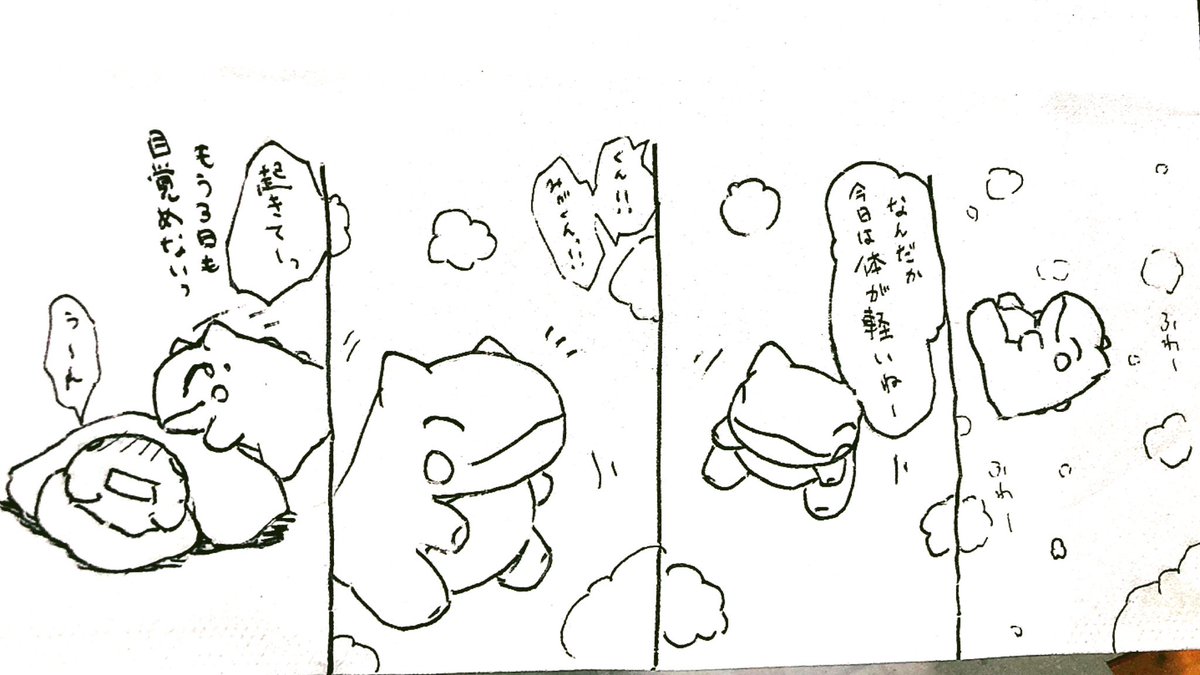 ふわー
ふわー
なんだか
今日は体が軽いねー
くん!!
みがくん!!
起きてーっ
もう3日も
目覚めないっ
うーん